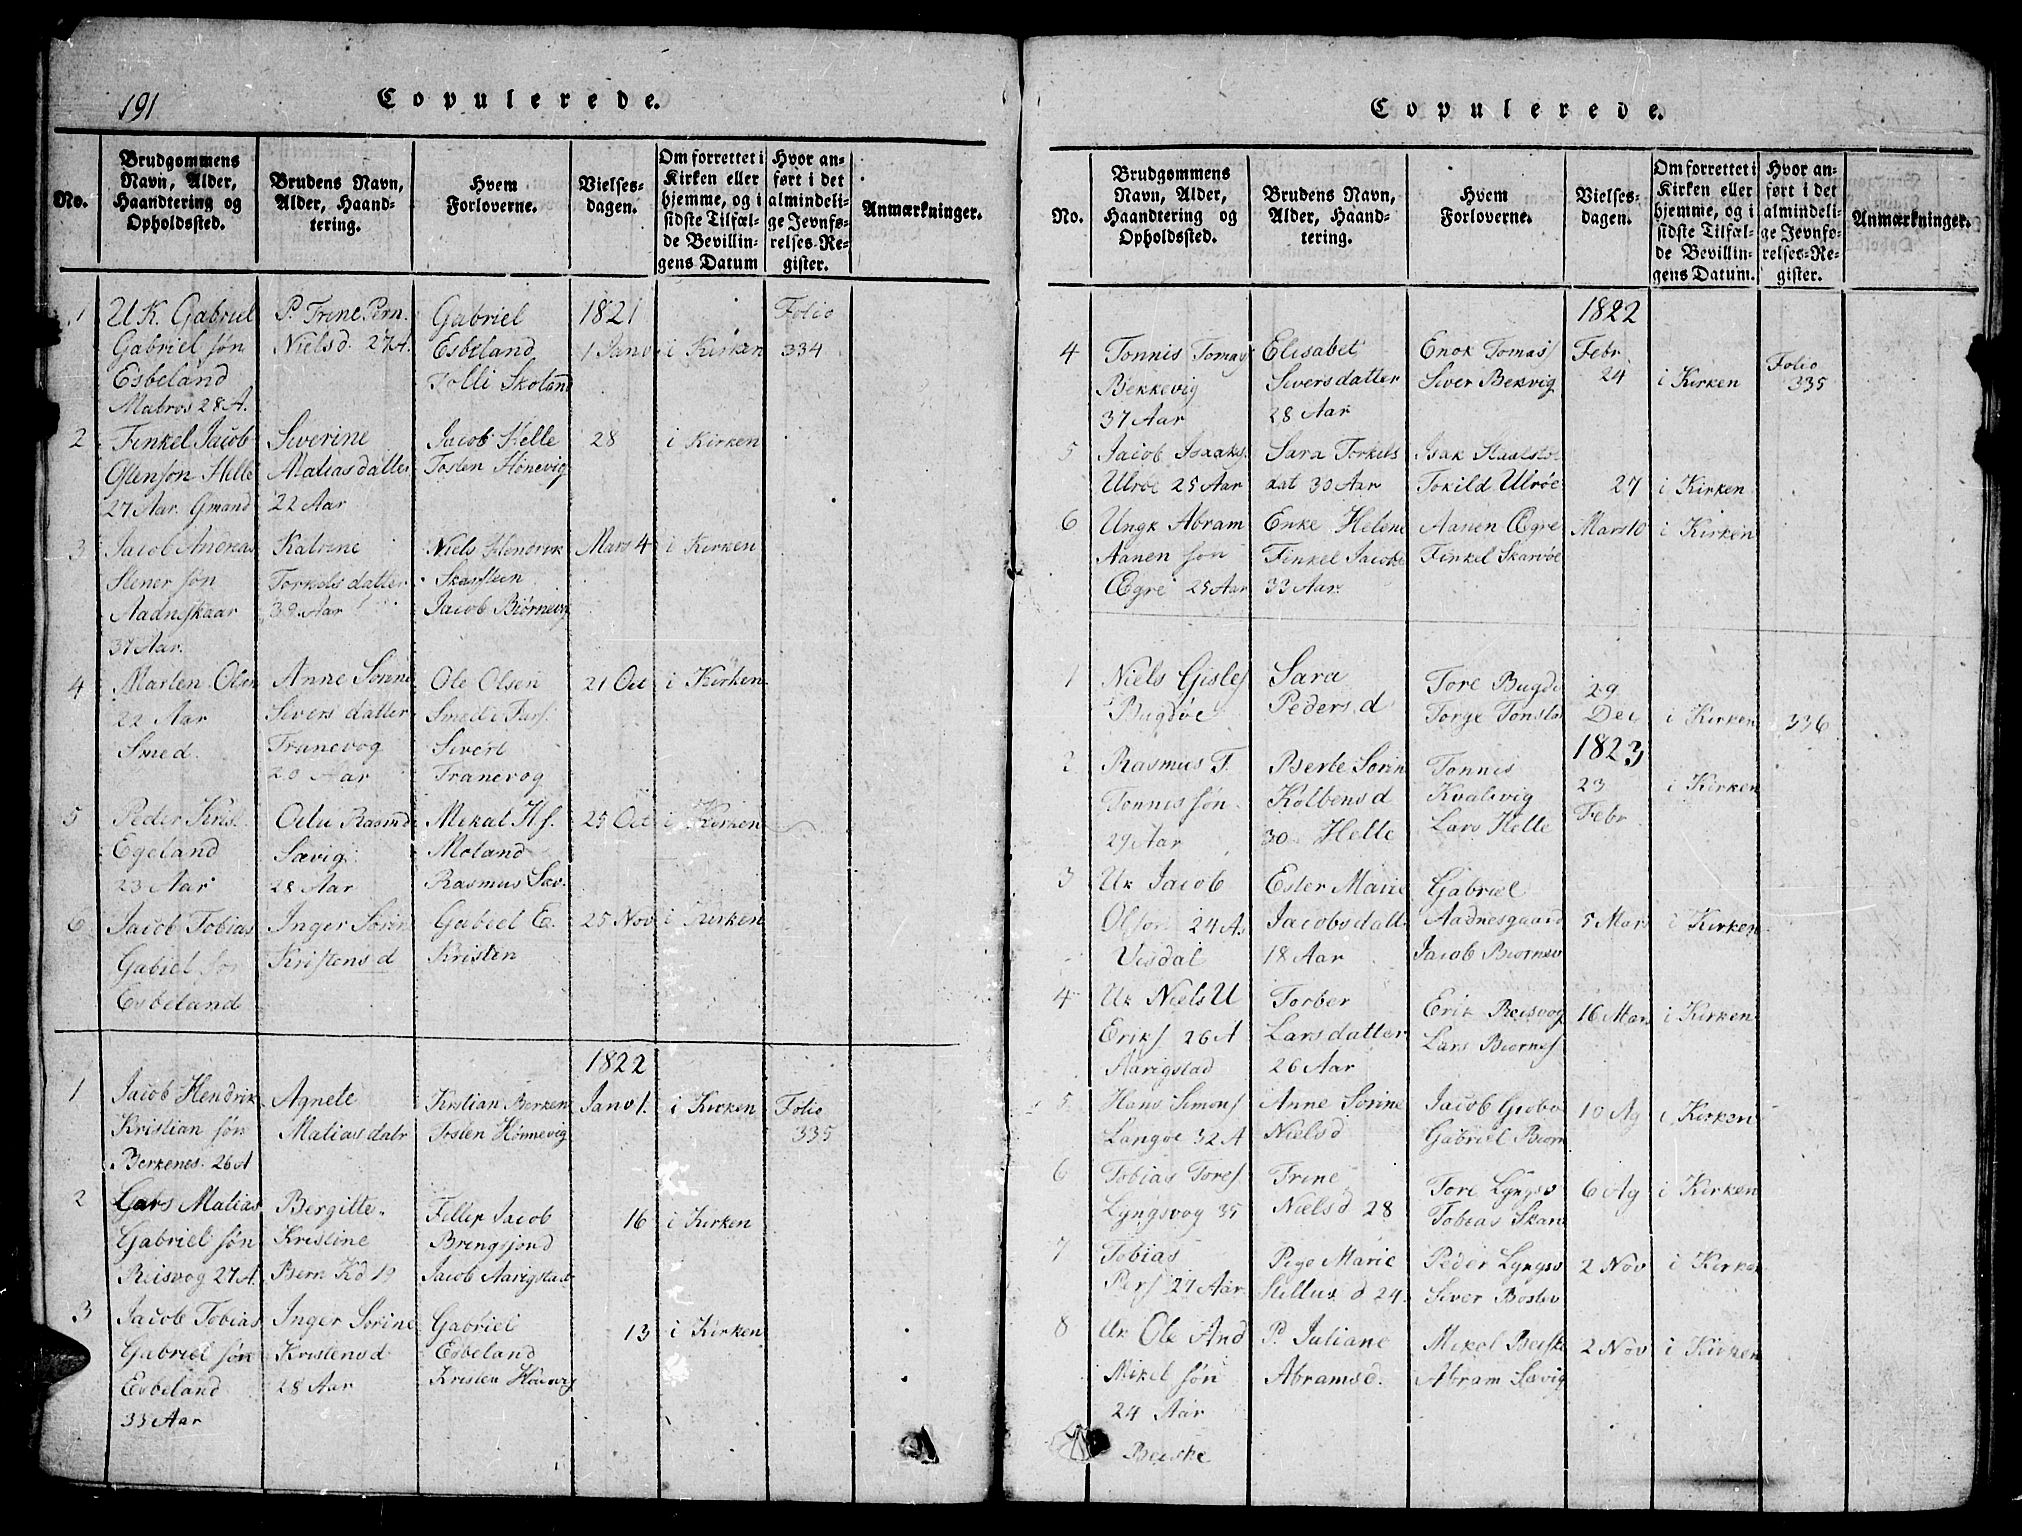 191
Copulerede.
No.
Brudgommens Navn, Alder, Haandtering og Opholdssted.
Brudens Navn, Alder, Haandtering.
Hvem Forloverne.
Vielsesdagen.
Om forrettet i Kirken eller hjemme, og i sidste Tilfælde Bevillingens Datum
Hvor anført i det almindelige Jevnførelses-Register.
Anmærkninger.
1
U K. Gabriel
Gabriel søn
Esbeland
Matros 28 A.
P. Trine Pern.
Nielsd. 27 A.
Gabriel
Esbeland
Tolli Skoland
1821
1 Janv
i Kirken
Folio
334
2
Finkel Jacob
Olensøn Helle
27 Aar. Gmand
Siverine
Matiasdatter
22 Aar
Jacob Helle
Tosten Hönevig
28
i Kirken
3
Jacob Andreas
Stener søn
Aadneskaar
37 Aar.
Katrine
Torkels datter
39 Aar
Niels Hendrik
Skarstein
Jacob Biörnevog
Mars 4
i Kirken
4
Marten Olsen
22 Aar
Smed.
Anne Sörine
Sivers datter
Tranevog
20 Aar
Ole Olsen
Smed i Fars.
Sivert
Tranevog
21 Oct
i Kirken
5
Peder Krist.
Egeland
23 Aar
Rasmd
Sævig
28 Aar
Mikal H.s.
Moland
Rasmus Sæv.
25 Oct
i Kirken
6
Jacob Tobias
Gabiel søn
Esbeland
Inger Sörin
Kristens d
Gabiel E.
Kristen
25 Nov
i Kirken
1822
1
Jacob Hendrik
Kristian søn
Berkenes. 26 A
Agnete
Matias datr
Kristian Berkenes
Tosten Hönnevig
Janv 1.
i Kirken
Folio
335
2
Lars Matias
Gabriel søn
Reisvog 27 A
Bergitte
Kristine
Bern K d 19
Fellep Jacob
Brengsjord
Jacob Aarigstad
16
i Kirken
3
Jacob Tobias
Gabriel søn
Esbeland
35 Aar
Inger Sörine
Kristensd
28 Aar
Gabriel
Esbeland
Kristen Hönevig
13
i Kirken
Copulerede.
No.
Brudgommens Navn, Alder, Haandtering og Opholdssted.
Brudens Navn, Alder, Haandtering.
Hvem Forloverne.
Vielsesdagen.
Om forrettet i Kirken eller hjemme, og i sidste Tilfælde Bevillingens Datum.
Hvor anført i det almindelige Jevnførelses-Register.
Anmærkninger.
1822
4
Tonnis Tomas
Bekkevig
37 Aar
Elisabet
Siversdatter
28 Aar
Enok Tomas
Siver Bekvig
Febr
24
i Kirken
Folio
335
5
Jacob Isaaks.
Ulröe 25 Aar
Sara Torkels
dat 30 Aar
Isak
Tokild Ulröe
27
i Kirken
6
Ungk Abram
Aanen søn
Øgre 25 Aar
Enke Helene
Finkel Jacobs
33 Aar.
Aanen Øgre
Finkel Skaröe
Mars 10
i Kirken
1
Niels Gisles
Bugdöe
Sara
Peders d
Tore Bugdö
Torge Tonsta
29
Dec
i Kirken
336
1823
2
Rasmus T.
Tonnis søn.
29 Aar
Berte Sörin
Kolbens d
30 Helle
Tonnis
Kvalevig
Lars Helle
23
Febr
i Kirken
3
Uk Jacob
Olsøn 24 A.
Visdal
Ester Marie
Jacobsdatt
18 Aar
Gabriel
Aadnesgaard
Jacob Biornev
5 Mars
i Kirken
4
Uk Niels U
Eriks 26 A
Aarigstad
Torber
Larsdatter
26 Aar
Erik Reisvog
Lars Biornes
16 Mars
i Kirken
5
Hans Simons
Langöe 32 A
Anne Sörine
Nielsd
Jacob
Gabriel Biorn
10 Ag
i Kirken
6
Tobias Tores
Lyngsvog 35
Trine
Nielsd 28
Tore Lyngsv
Tobias Skar
6 Ag
i Kirken
7
Tobias
Pers 27 Aar
Pige Marie
Stillus d 24.
Peder Lyngsv
Siver Bostev
2 Nov
i Kirken
8
Uk Ole And
Mikel søn
24 Aar
Beiske
P. Juliane
Abramsd.
Mikol Beiske
Abram Sævig
2 Nov
i Kirken